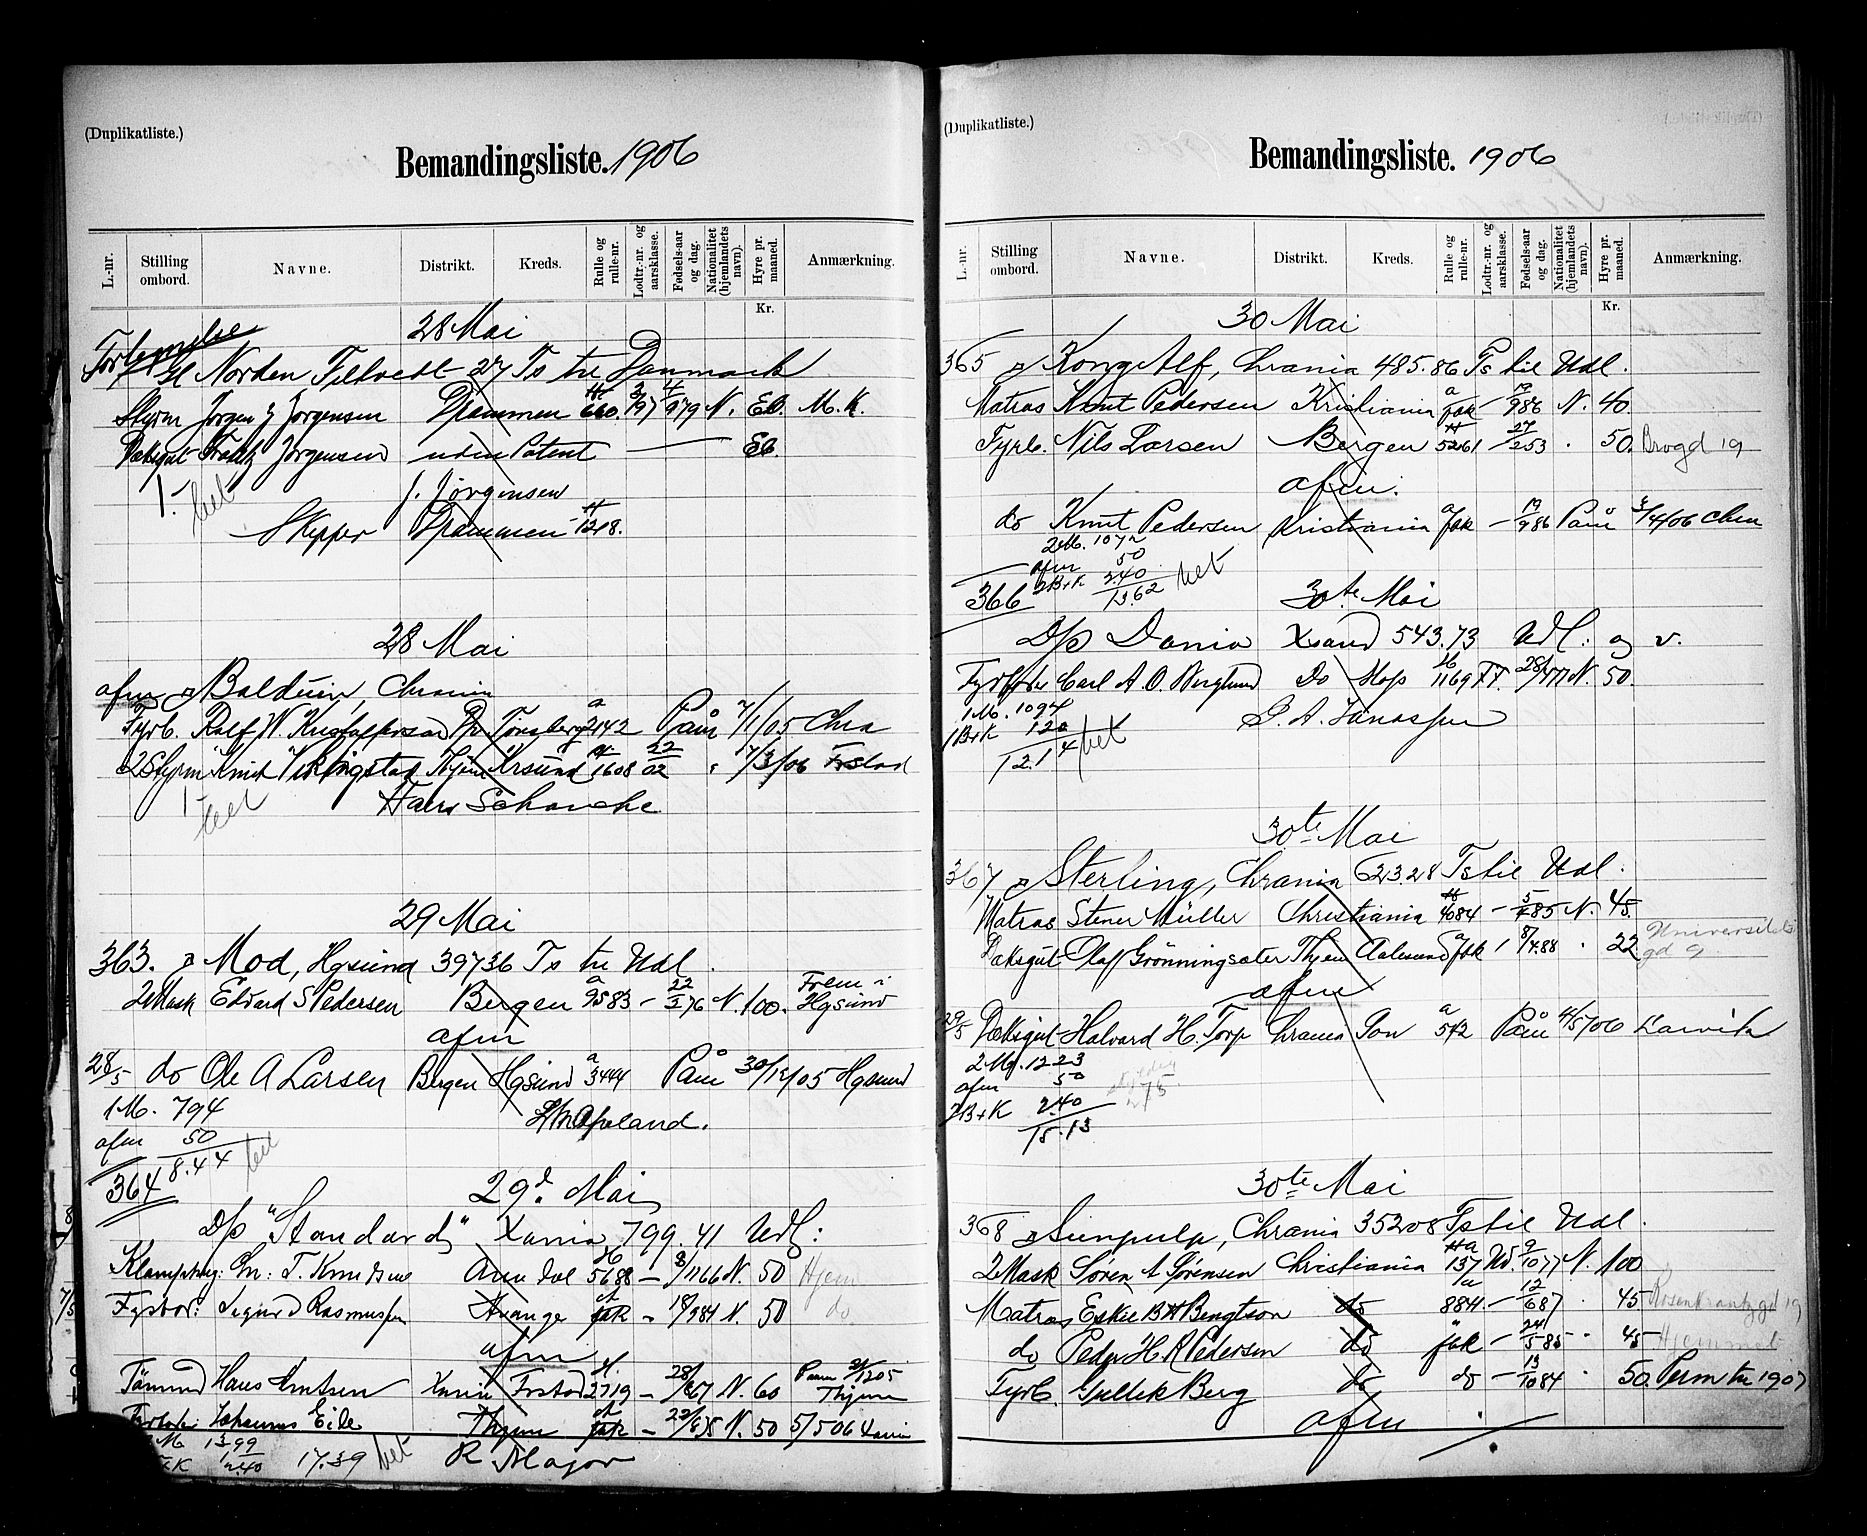 (Duplikatliste.)
Bemandingsliste. 1906
L.-nr. Stilling ombord. Navne. Distrikt. Kreds. Rulle og rulle-nr. Lodtr.-nr. og aarsklasse. Fødsels-aar og dag. Nationalitet (hjemlandets navn). Hyre pr. maaned. Anmærkning.
Kr.
28 Mai
Norden Tilvedt 27 Ts til Danmark
Styrm Jørgen J Jørgensen Drammen 660. N. M.K.
Jørgensen uden Patent
J. Jørgensen
1.-
Skipper Drammen 1218.
28 Mai
afm Balduin, Chrania
Fyrb. Rolf W. Kristoffersen Tønsberg 2142 Paam 7/1/05 Chra
2 Styrm Knut Vikingstad Hjem Krsund 1608 7/3/06 Frstad
1-
Hans Schanche
29 Mai
363. Mod, Hgsund 397 36 Ts til Udl.
2 Mask Edvard S Pedersen Bergen 9583 - 22/3 76 N. 100. Frem i Hgsund
afm
28/5 do Ole A Larsen Bergen Hgsund 3444 Paam 30/12/05 Hgsund
1 M. 794
afm 50
8.44
364
29d. Mai
D/p "Standard" Xania 799.41 Udl:
T. Knudsen Arendal 5688 - N. 50 Hjem
Fyrbød: Sigurd Rasmussen Stavanger fak - 18/9 84 N. 50 do
afm
Tømmd Hans Xania Frstad 2719 - N. 60 Hjem
Johannes Eide Hjem fak - N. 50 5/5 06
M 1399
2.40 17.39
R Major
(Duplikatliste.)
Bemandingsliste. 1906
L.-nr. Stilling ombord. Navne. Distrikt. Kreds. Rulle og rulle-nr. Lodtr.-nr. og aarsklasse. Fødsels-aar og dag. Nationalitet (hjemlandets navn). Hyre pr. maaned. Anmærkning.
Kr.
30 Mai
365 Kong Alf, Chrania 485.86 Ts til Udl.
Matros Knut Pedersen Kristiania a fak - 19/9 86 N. 40.
Fyrb. Nils Larsen Bergen 5261 27/2 53 . 50. Brogd 19
afm.
do Knut Pedersen Kristiania a fak - 19/9 86 Paam 3/4/06 Chra
2 M. 1072
afm 50
2 B+K 240
13.62
366
30te Mai
D/p Dania Xsand 543.73 Udl: og v.
Fyrbøder Carl A. O. Berglund Do Hop 1169 FF. N. 50.
1 M. 1094
1 B+K 120
12.14
30te Mai
367 Sterling, Chrania 623.28 Ts til Udl.
Matros Stener Müller Christiania 4084 - N. 45.
Dæksgut Olaf Grønningsæter Hjem Aalesund a fak 8/4.88 . 22 Universitetsgd 9
afm
29/5 Dæksgut Halvard H. Torp Chrania Son a 512 Paam 4/5/06 Larvik
2 M. 1223
afm 50
2 B+K 240
15.13
30te Mai
368 Sunpulp, Chrania 352 08 Ts til Udl.
2 Mask Søren A Sørensen Christiania 137 Ud. 9/10 77 N. 100
Matros Eskil B H Bengtson do a 884 - 12/6 87 . 45 Rosenkrantzgd 19
do Peder H. R Pedersen do fak - 24/5 85 . 45 Hjemmet
Fyrb. Gullik Berg do do - 13/10 84 . 50. Perm til 1907
afm